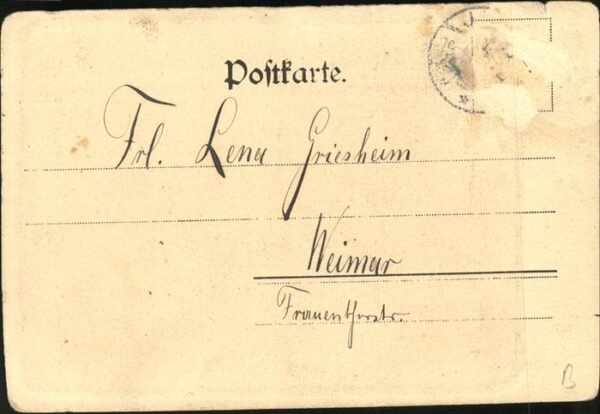 Postkarte.
Frl. Lena Griesheim
Weimar
Frauenthorstr.
B